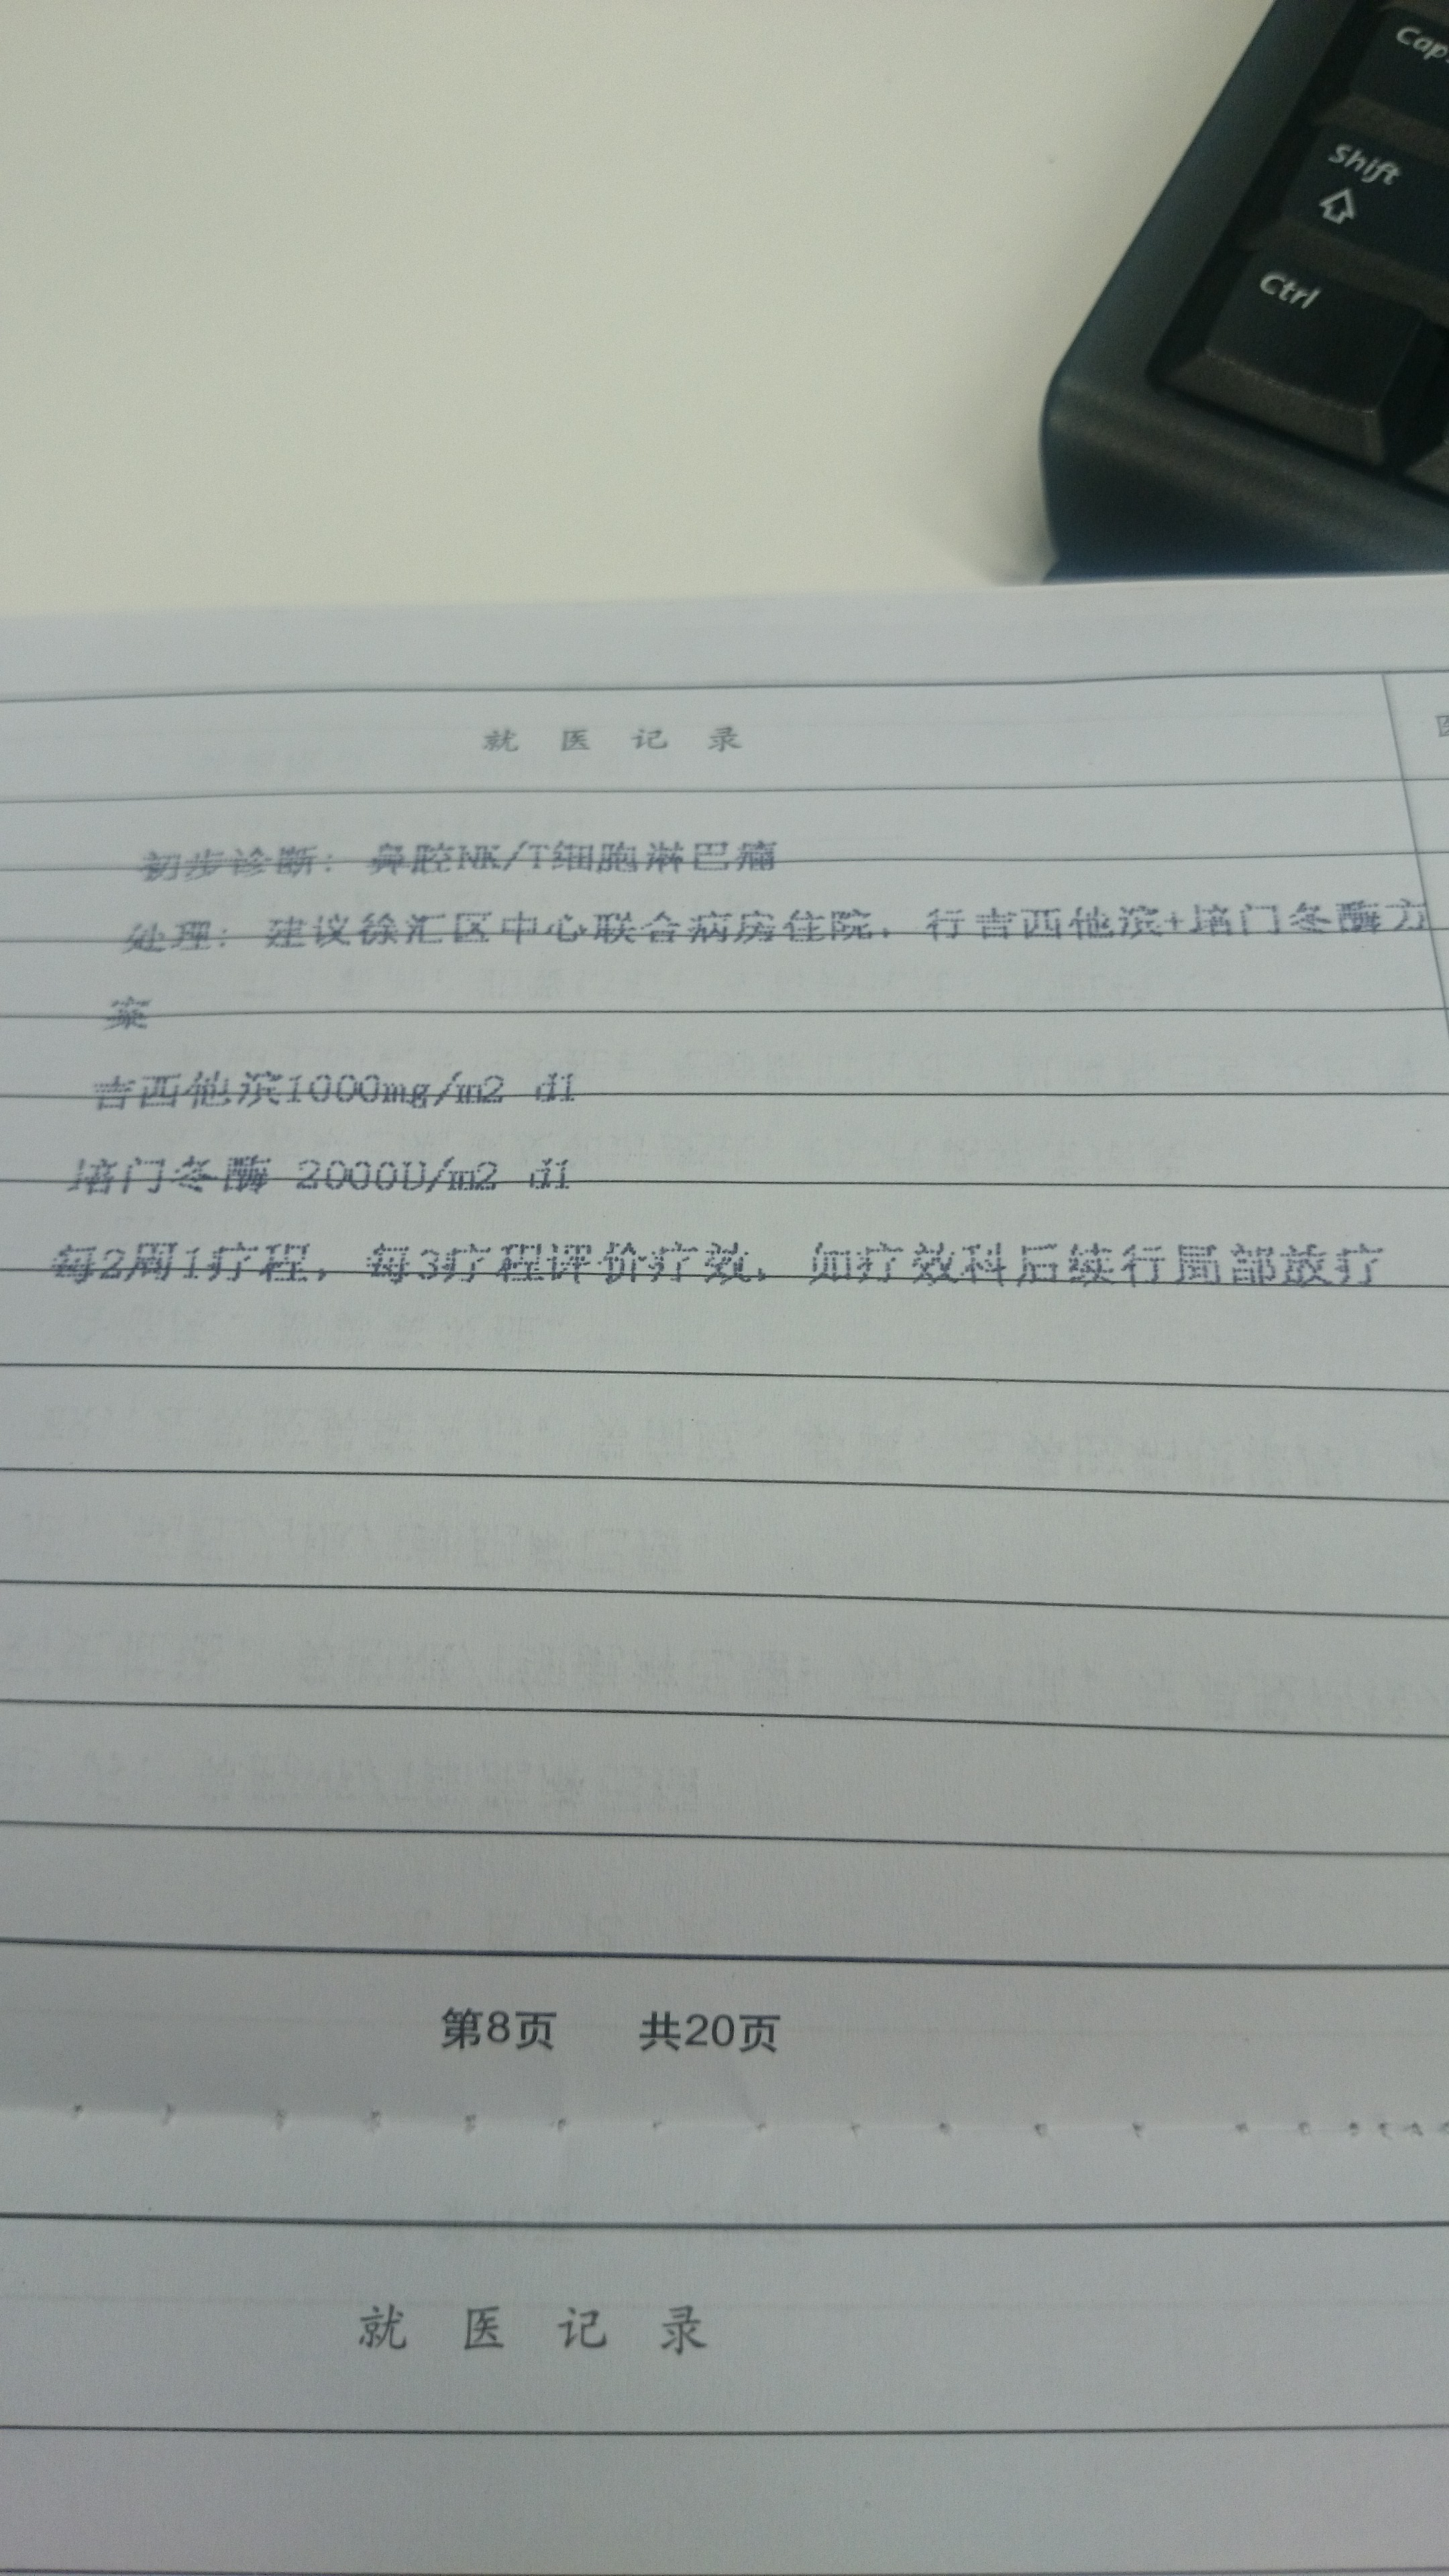 Cap
Shift
Ctrl
就 医 记 录
初步诊断：鼻腔NK/T细胞淋巴瘤
处理：建议徐汇区中心联合病房住院，行吉西他滨+培门冬酶方
案
吉西他滨1000mg/m2 d1
培门冬酶 2000U/m2 d1
每2周1疗程，每3疗程评价疗效，如疗效科后续行局部放疗
第8页 共20页
就 医 记 录